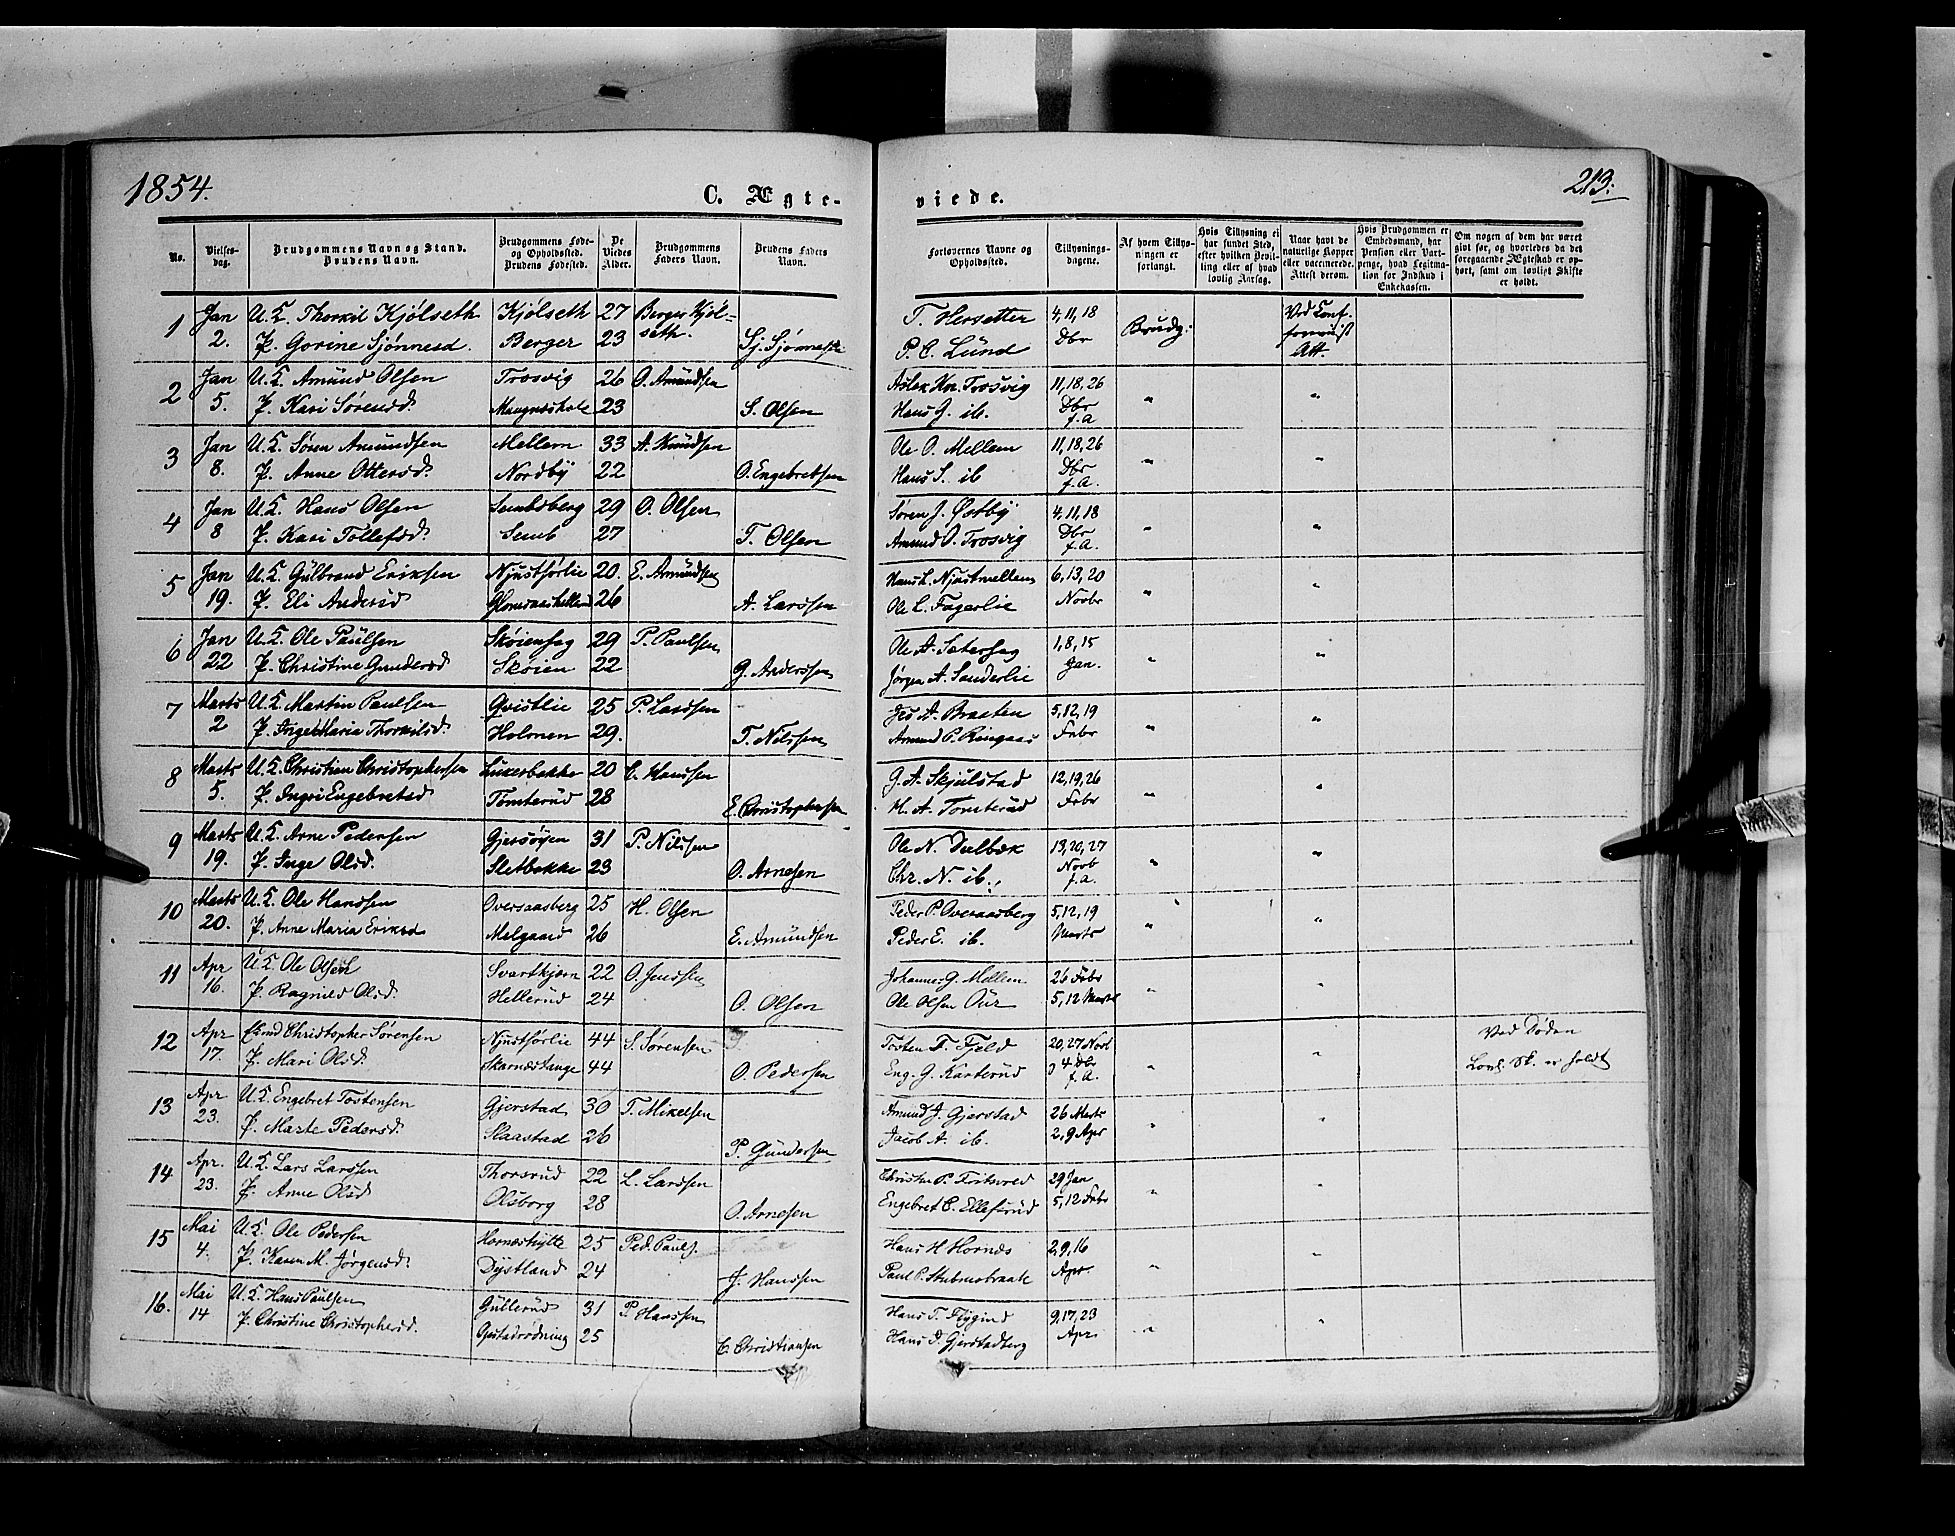 1854.
C. Ægte-
viede.
213.
No.
Vielses-
dag.
Brudgommens Navn og Stand.
Brudens Navn.
Brudgommens Føde-
og Opholdssted.
Brudens Fødested.
De
Viedes
Alder.
Brudgommens
Faders Navn.
Brudens Faders
Navn.
Forlovernes Navne og
Opholdssted.
Tillysnings-
dagene.
Af hvem Tillys-
ningen er
forlangt.
Hvis Tillysning ei
har fundet Sted,
efter hvilken Bevil-
ling eller af hvad
lovlig Aarsag.
Naar havt de
naturlige Kopper
eller vaccinerede.
Attest derom.
Hvis Brudgommen er
Embedsmand, har
Pension eller Vart-
penge, hvad Legitima-
tion for Indskud i
Enkekassen.
Om nogen af dem har været
gift før, og hvorledes da det
foregaaende Ægteskab er op-
hørt, samt om lovligt Skifte
er holdt.
1 Jan U.K. Thorkil Kjølseth Kjølseth 27 Berger Kjøl- T. Hersetter 4, 11, 18 Brudg: Ved Conf.
2. P. Gorine Sjønnesd. Berger 23 seth. Sj. Sjønnes P. C. Lund Dbr Att.
2 Jan U.K. Amund Olsen Trosvig 26 O. Amundsen Aslak Kn. Trosvig 11, 18, 26 " "
5. P. Kari Sørensd. Mangnæshole 23 S. Olsen Hans G. ib. Dbr f.A.
3 Jan U.K. Søren Amundsen Mellem 33 A. Knudsen Ole O. Mellem 11, 18, 26 " "
8. P. Anne Ottersd. Nordby 22 O. Engebretsen Hans S. ib Dbr f.A.
4 Jan U.K. Hans Olsen Sembsberg 29 O. Olsen Søren J. Østby 4, 11, 18 " "
8 P. Kari Tollefsd. Semb 27 T. Olsen Amund O. Trosvig Dbr f.A.
5 Jan U.K. Gulbrand Eriksen Njustførlie 20. E. Amundsen Hans L. Njustmellem 6, 13, 20 " "
19. P. Eli Andersd 26 A. Larssen Ole L. Fagerlie Novbr
6 Jan U.K. Ole Paulsen Skøienhag 29 P. Paulsen Ole A. Sæterhag 1, 8, 15 " "
22 P. Christine Gundersd Skøien 22 G. Anderssen Jørgen A. Sanderlie Jan.
7 Marts U.K. Martin Paulsen Qvistlie 25 P. Larssen A. Braaten 5, 12, 19 "
2 P. Inger Maria Thorkilsd. Holmen 29. T. Nilssen Amund P. Ringaas Febr
8 Marts U.K. Christian Christophersen Luxerbakke 20 C. Hanssen G. A. Skjulstad 12, 19, 26 " "
5. P. Ingri Engebretsd Tomterud 28 E. Christophersen H. A. Tomterud Febr
9 Marts U.K. Arne Pedersen Gjersøyen 31 P. Nilssen Ole N. Dulbæk 13, 20, 27 " "
19. P. Inge Olsd. Sletbakke 23 O. Arnesen Chr. N. ib. Novb f.a.
10 Marts U.K. Ole Hanssen Oversaasberg 25 H. Olsen Peder P. Oversaasberg 5, 12, 19 " "
20. P. Anne Maria Eriksd Melgaard 26 E. Amundsen Peder E. ib. Marts
11 Apr U.K. Ole Olsen Svartkjern 22 O. Jenssen Johannes G. Mellem 26 Febr " "
16. P. Ragnild Olsd. Hellerud 24 O. Olsen Ole Olsen Aur 5, 12 Marts
12 Apr Christopher Sørensen Njustførlie 44 S. Sørensen Tosten F. Fjeld 20, 27 Novb " " Ved Døden
17. P. Mari Olsd. Skarnæstange 44 O. Pedersen Eng. G. Karterud 4 Dbr f.A. Lovl. Sk. er holdt
13 Apr U.K. Engebret Tostensen Gjerstad 30 T. Mikelsen Amund J. Gjerstad 26 Marts " "
23. P. Marte Pedersd. Slaastad 26 P. Gundersen Jacob A. ib. 2, 9 Apr
14 Apr. U.K. Lars Larssen Thorsrud 22 L. Larssen Christen P. Fritsvred 29 Jan " "
23. P. Anne Olsd Olsborg 28 O. Arnesen Engebret C. Ellefsrud 5, 12 Febr
15 Mai U.K. Ole Pedersen Hornæshytte 25 Ped. Pauls. Hans H Hornæs 2, 9, 16 " "
4. P. Karen M. Jørgensd. Dystland 24 J. Hanssen Paul P. Stubmobraate Apr.
16. Mai U.K. Hans Paulsen Gullerud 31 P. Hanssen Hans T. Flygind 9, 17, 23 " "
14 P. Christine Christophersd. Opstadrødning 25 C. Christiansen Hans P. Gjerstadberg Apr.